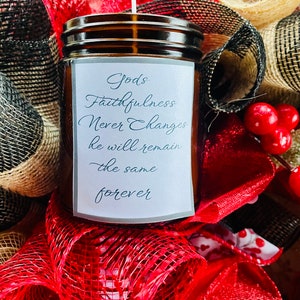 God's
Faithfulness
Never Changes
he will remain
the same
forever